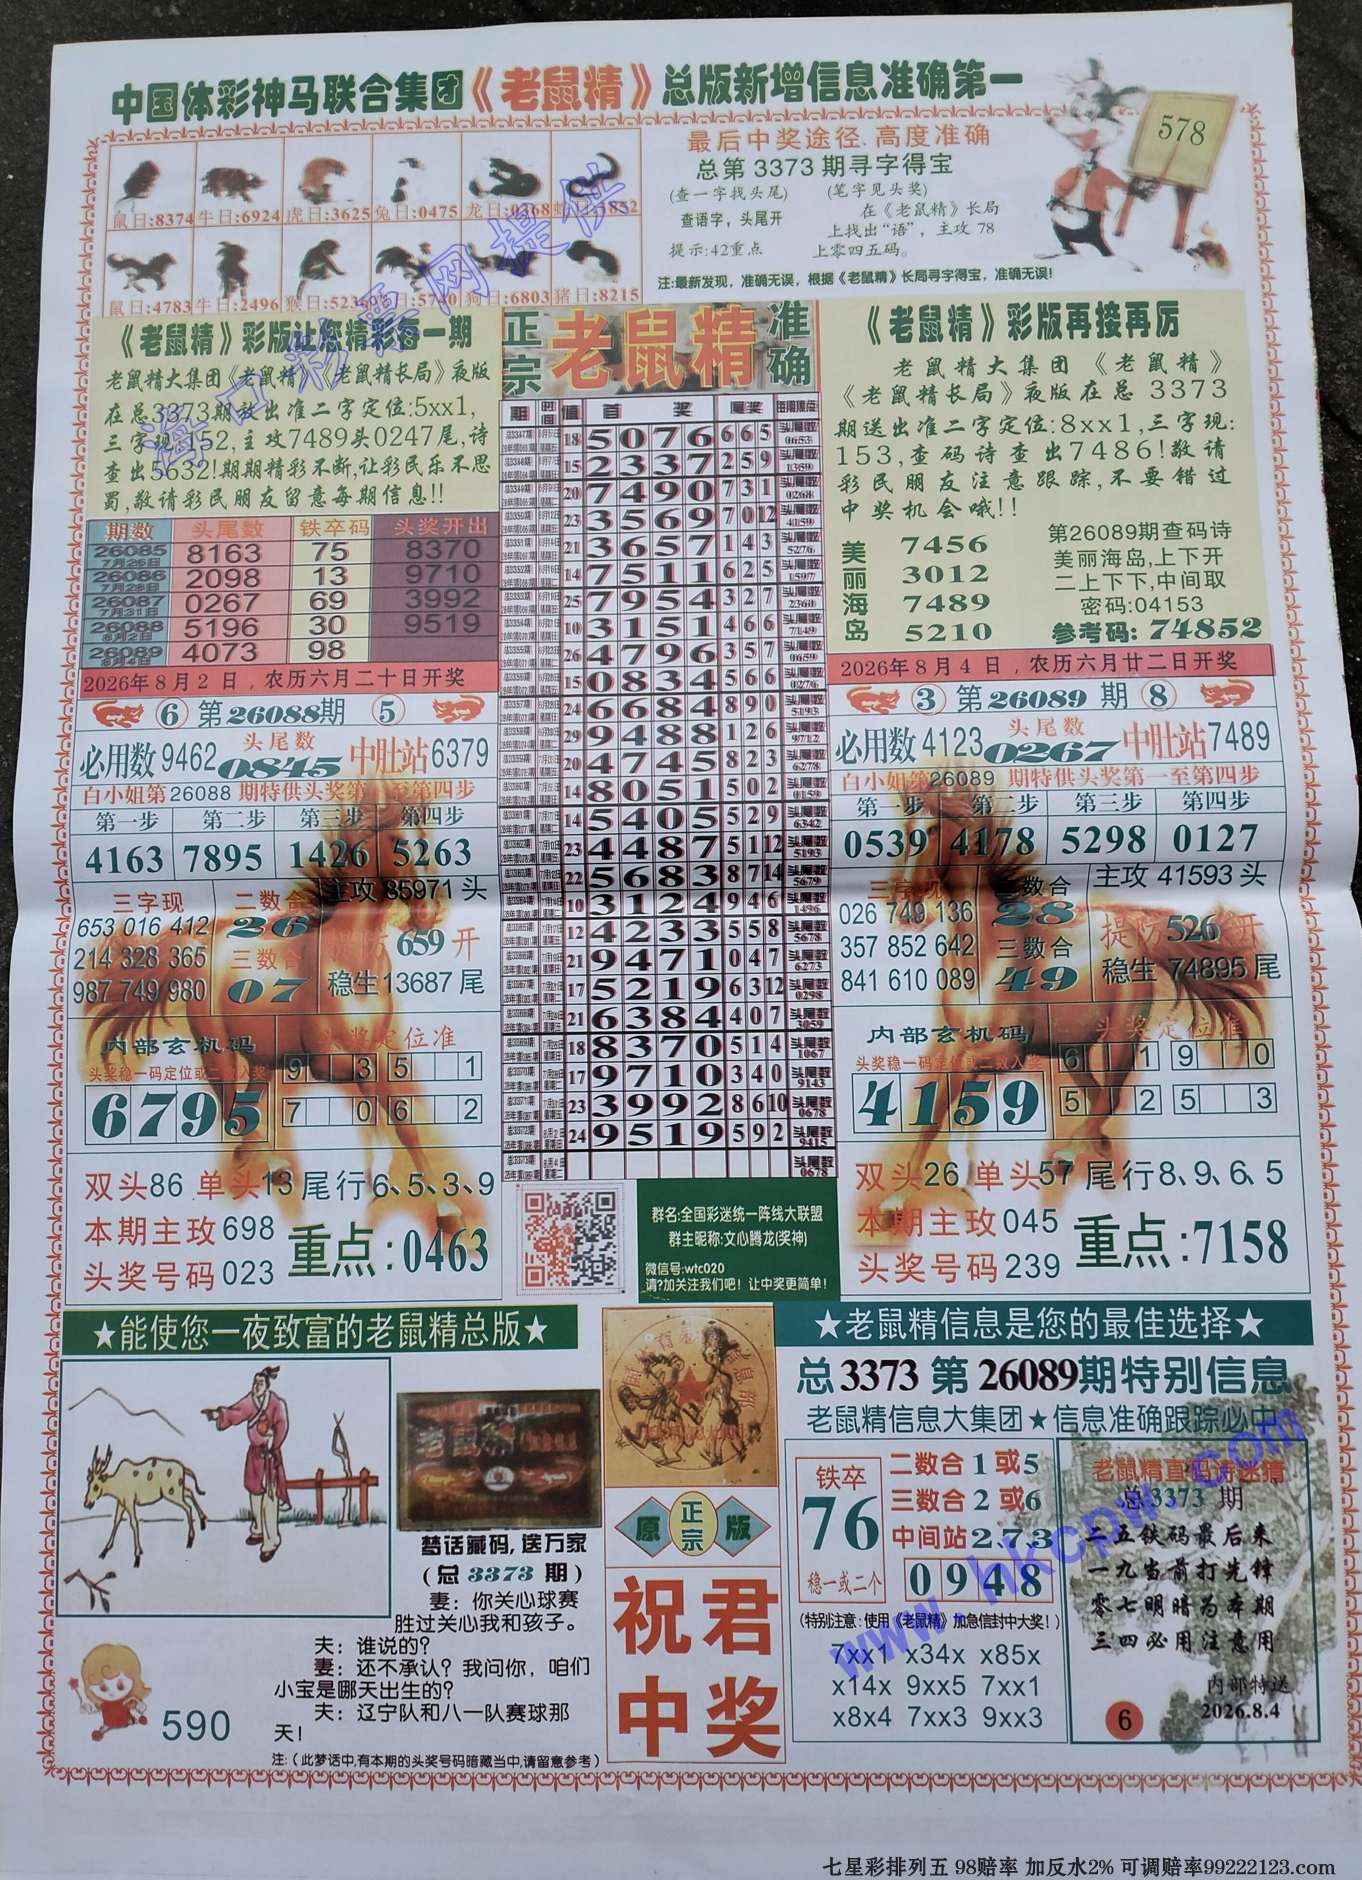 中国体彩神马联合集团《老鼠精》总版新增信息准确第一
鼠日:8374 牛日:6924 虎日:3625 兔日:0475
鼠日:4783 牛日:2496 猴日:5236 5740 狗日:6803 猪日:8215
最后中奖途径.高度准确
总第3373期寻字得宝
(查一字找头尾) (笔字见头奖)
查语字，头尾开
提示:42重点
在《老鼠精》长局
上找出“语”，主攻78
上零四五码。
注:最新发现，准确无误，根据《老鼠精》长局寻字得宝，准确无误!
578
《老鼠精》彩版让您精彩每一期
老鼠精大集团《老鼠精》《老鼠精长局》夜版
在总3373期放出准二字定位:5xx1,
三字现:152,主攻7489头0247尾,诗
查出5632!期期精彩不断,让彩民乐不思
蜀,敬请彩民朋友留意每期信息!!
期数 头尾数 铁卒码 头奖开出
26085 7月26日 8163 75 8370
26086 7月28日 2098 13 9710
26087 7月31日 0267 69 3992
26088 8月2日 5196 30 9519
26089 8月4日 4073 98
2026年8月2日，农历六月二十日开奖
6 第26088期 5
必用数9462 头尾数 0845 中肚站6379
白小姐第26088期特供头奖第一至第四步
第一步 第二步 第三步 第四步
4163 7895 1426 5263
三字现
653 016 412
214 328 365
987 749 980
二数合
26
三数合
07
主攻85971头
提防659开
稳生13687尾
内部玄机码
头奖稳一码定位或二数入奖
6795
头奖定位准
9 3 5 1
7 0 6 2
双头86 单头13 尾行6、5、3、9
本期主攻698
头奖号码023
重点:0463
正宗 老鼠精 准确
期 时间 值 首奖 尾奖 每期现位
18 5076 6 6 5 头尾数 0653
15 2337 2 5 9 头尾数 1359
20 7490 7 3 1 头尾数 0268
23 3569 7 0 12 头尾数 4159
21 3657 1 4 3 头尾数 5276
14 7511 6 2 5 头尾数 1597
25 7954 3 2 7 头尾数 2360
10 3151 4 6 6 头尾数 7149
26 4796 3 5 7 头尾数 0659
15 0834 5 6 6 头尾数 0276
24 6684 8 9 0 头尾数 5193
29 9488 1 2 6 头尾数 9712
20 4745 8 2 3 头尾数 6278
14 8051 5 0 2 头尾数 0159
14 5405 5 2 9 头尾数 6342
23 4487 5 1 12 头尾数 5193
22 5683 8 7 14 头尾数 5679
10 3124 9 4 6 头尾数 1496
12 4233 5 5 8 头尾数 5678
21 9471 0 4 7 头尾数 6273
17 5219 6 3 12 头尾数 0298
21 6384 4 0 7 头尾数 3059
18 8370 5 1 4 头尾数 1067
17 9710 3 4 0 头尾数 9143
23 3992 8 6 10 头尾数 0678
24 9519 5 9 2 头尾数 9415
头尾数 0678
群名:全国彩迷统一阵线大联盟
群主昵称:文心腾龙(奖神)
微信号:wtc020
请?加关注我们吧！让中奖更简单!
《老鼠精》彩版再接再厉
老鼠精大集团《老鼠精》
《老鼠精长局》夜版在总3373
期送出准二字定位:8xx1,三字现:
153,查码诗查出7486!敬请
彩民朋友注意跟踪,不要错过
中奖机会哦!!
美 7456
丽 3012
海 7489
岛 5210
第26089期查码诗
美丽海岛,上下开
二上下下,中间取
密码:04153
参考码:74852
2026年8月4日，农历六月廿二日开奖
3 第26089期 8
必用数4123 头尾数 0267 中肚站7489
白小姐第26089期特供头奖第一至第四步
第一步 第二步 第三步 第四步
0539 4178 5298 0127
三字现
026 749 136
357 852 642
841 610 089
二数合
28
三数合
49
主攻41593头
提防526开
稳生74895尾
内部玄机码
头奖稳一码定位或二数入奖
4159
头奖定位准
6 1 9 0
5 2 5 3
双头26 单头57 尾行8、9、6、5
本期主攻045
头奖号码239
重点:7158
★能使您一夜致富的老鼠精总版★
梦话藏码,送万家
(总3373期)
妻：你关心球赛
胜过关心我和孩子。
夫：谁说的?
妻：还不承认？我问你，咱们
小宝是哪天出生的？
夫：辽宁队和八一队赛球那
天！
注:(此梦话中,有本期的头奖号码暗藏当中,请留意参考)
590
原 正宗 版
祝君
中奖
★老鼠精信息是您的最佳选择★
总3373第26089期特别信息
老鼠精信息大集团★信息准确跟踪必中
铁卒
76
稳一或二个
二数合1或5
三数合2或6
中间站2.7.3
0948
(特别注意:使用《老鼠精》加急信封中大奖!)
7xx1 x34x x85x
x14x 9xx5 7xx1
x8x4 7xx3 9xx3
老鼠精直码诗迷猜
总3373期
二五铁码最后来
一九当前打先锋
零七明暗为本期
三四必用注意用
内部特送
2026.8.4
6
海口彩票网提供
www.hkcpw.com
七星彩排列五 98赔率 加反水2% 可调赔率99222123.com